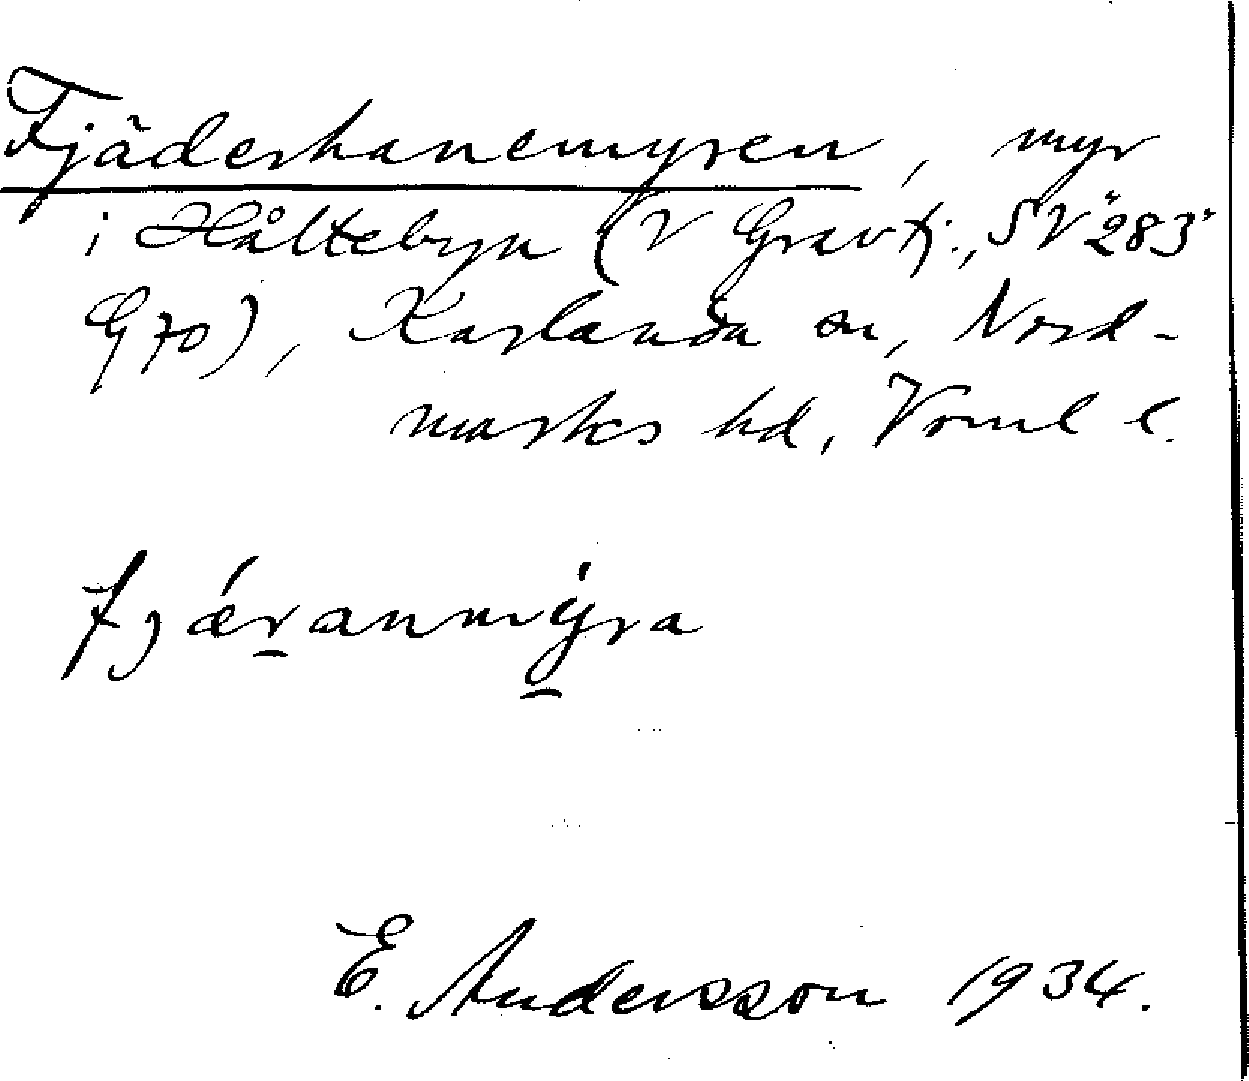 Fjäderhanemyren, myr
i Håltebyn (V Gravtj., SV "283"
G 70), Karlanda sn, Nord-
marks hd, Vrml l.
fjǽranmýra
E. Andersson 1934.